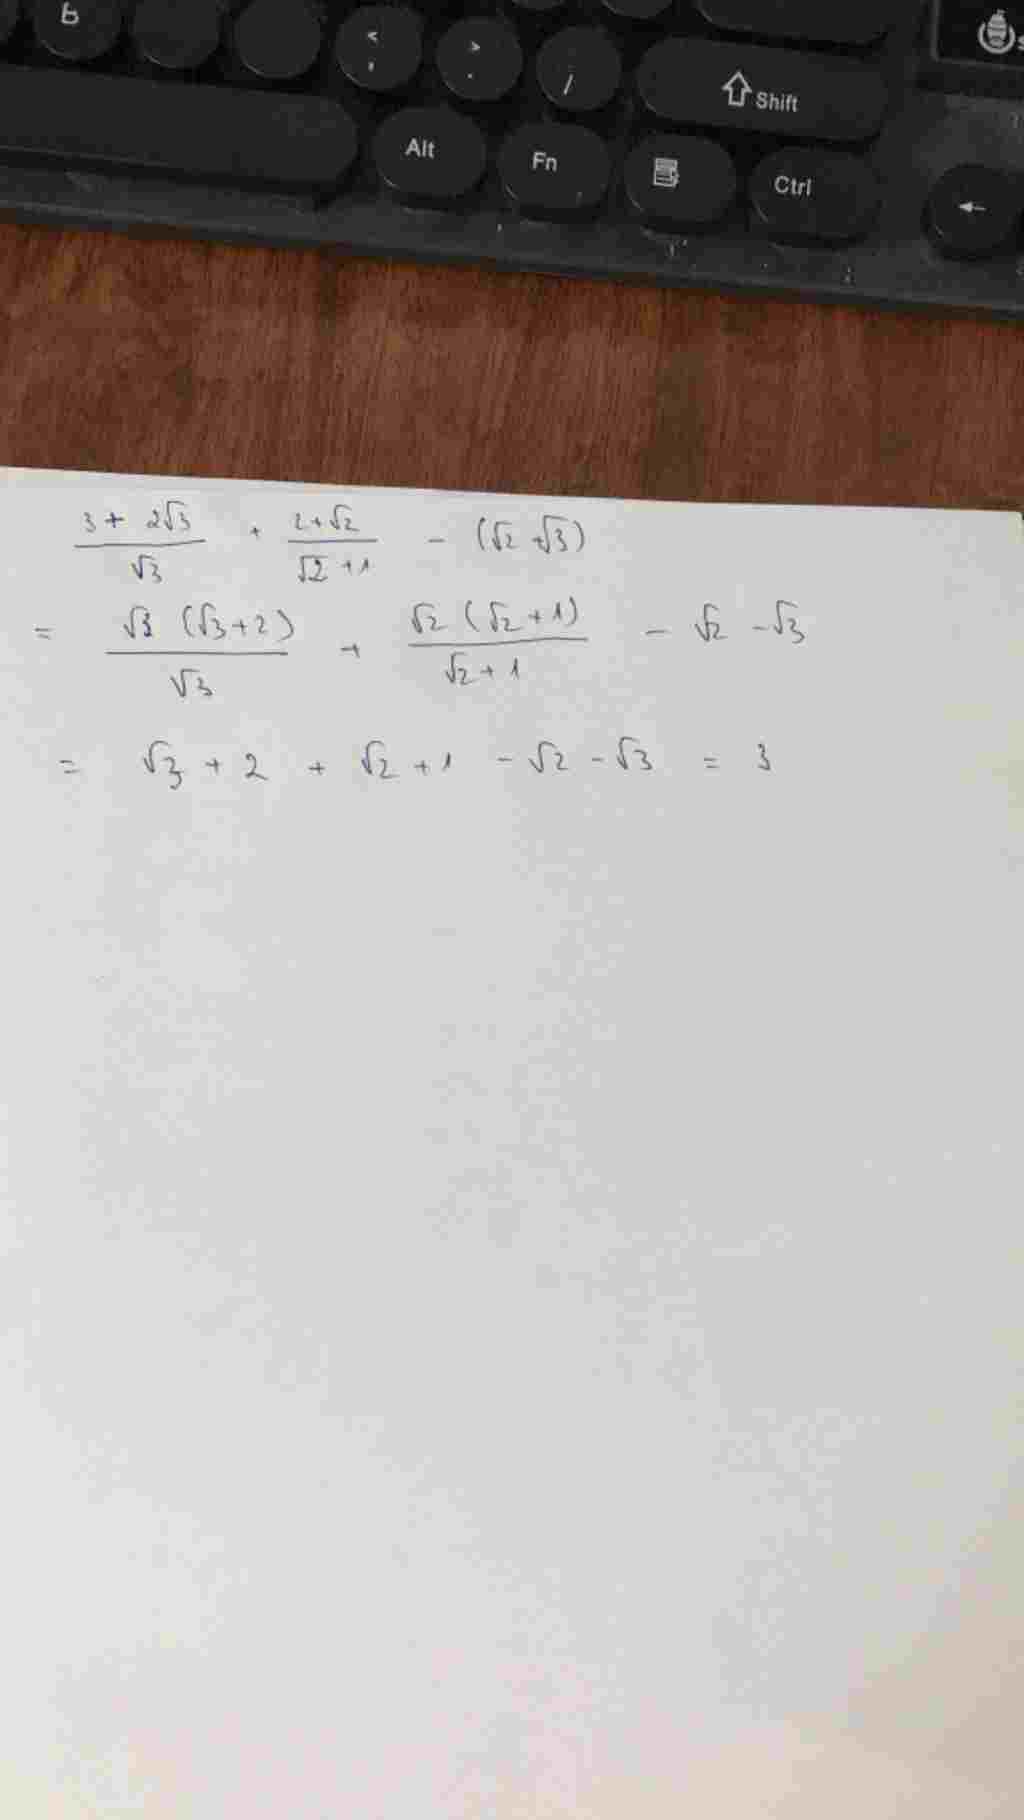 b < , > . / Shift
Alt Fn Ctrl
3 + 2√3 / √3 + 2+√2 / √2 + 1 - (√2 +√3)
= √3 (√3+2) / √3 + √2 (√2+1) / √2+1 - √2 - √3
= √3 + 2 + √2 + 1 - √2 - √3 = 3